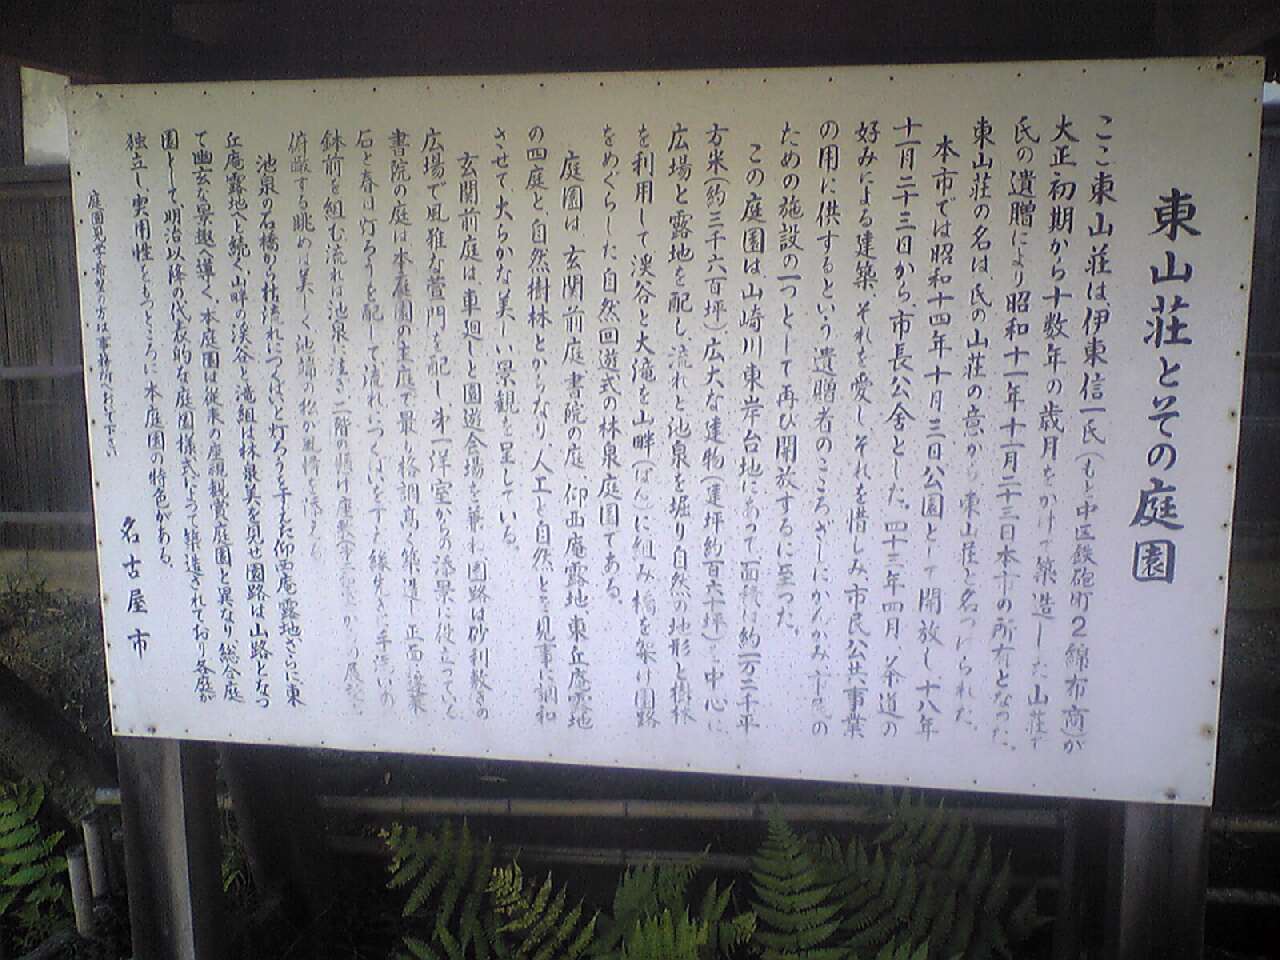 東山荘とその庭園
ここ東山荘は、伊東信一氏(もと中区鉄砲町2綿布商)が
大正初期から十数年の歳月をかけて築造した山荘で
氏の遺贈により昭和十一年十一月二十三日本市の所有となった。
東山荘の名は、氏の山荘の意から東山荘と名づけられた。
本市では昭和十四年十月三日公園として開放し、十八年
十一月二十三日から、市長公舎とした。四十三年四月、茶道の
好みによる建築、それを愛しそれを惜しみ、市民公共事業
の用に供するという遺贈者のこころざしにかんがみ、市民の
ための施設の一つとして再び開放するに至った。
この庭園は、山崎川東岸台地にあって面積は約一万二千平
方米(約三千六百坪)広大な建物(建坪約百六十坪)を中心に
広場と露地を配し、流れと池泉を堀り自然の地形と樹林
を利用して渓谷と大滝を山畔(はん)に組み橋を架け園路
をめぐらした自然回遊式の林泉庭園である。
庭園は、玄関前庭、書院の庭、仰西庵露地、東丘庵露地
の四庭と、自然樹林とからなり、人工と自然とを見事に調和
させて、大らかな美しい景観を呈している。
玄関前庭は、車廻しと園遊会場を兼ね園路は砂利敷きの
広場で風雅な萱門を配し、第一洋室からの添景に役立っている
書院の庭は本庭園の主庭で最も格調高く築造し正面に
石と春日灯ろうを配して流れにつくばいを 縁先きに手洗いの
鉢前を組む流れは池泉に注ぎ二階の 座敷 からの展望
俯瞰する眺めは美しく池端の松が風情を添える
池泉の石橋から枯流れにつくばいと灯ろうを 仰西庵露地さらに東
丘庵露地へと続く、山畔の渓谷と滝組は林泉美を見せ園路は山路となつ
て幽玄な景趣へ導く、本庭園は従来の座観観賞庭園と異なり、総合庭
園として、明治以降の代表的な庭園様式によって築造されており各庭が
独立し、実用性をもつところに本庭園の特色がある。
庭園見学希望の方は事務所においで下さい
名古屋市